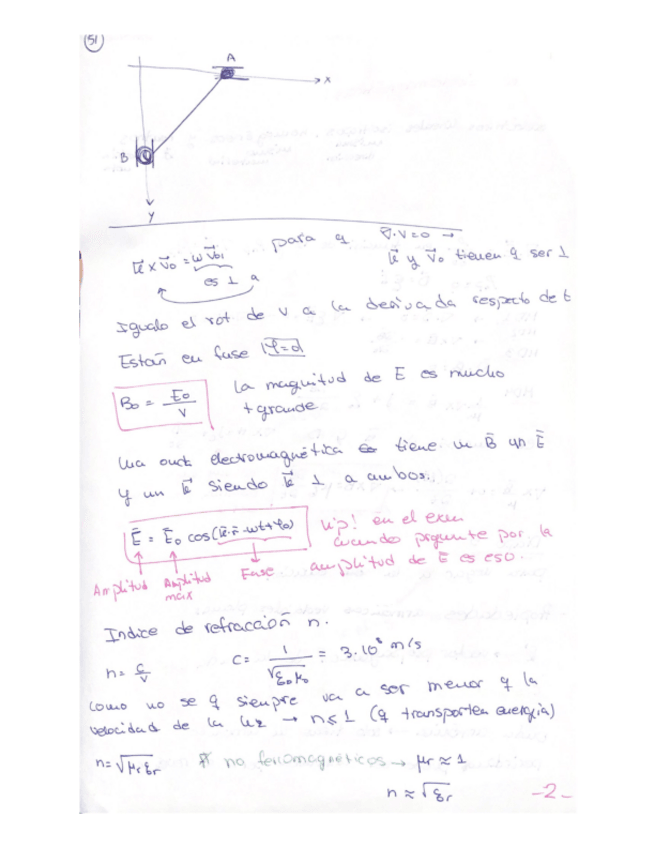 51
A
x
B
y
para q ∇·v=0 →
k⃗ x v⃗₀ = ω v⃗₀₁ k⃗ y v⃗₀ tienen q ser ⊥
es ⊥ a
Igualo el rot de v a la derivada respecto de t
Están en fase |φ=0|
B₀ = E₀/v La magnitud de E es mucho
+ grande
Una onda electromagnética tiene un B̄ un Ē
y un k⃗ siendo k⃗ ⊥ a ambos.
Ē = Ē₀ cos(k̄·r̄-ωt+φ₀) Vip! en el exam
cuando pregunte por la
amplitud de Ē es eso.
Amplitud Amplitud máx Fase
Indice de refracción n.
n = c/v C = 1/√ε₀μ₀ = 3·10⁸ m/s
como no se q siempre va a ser menor q la
velocidad de la luz → n≤1 (q transporten energía)
n=√μrεr no ferromagnéticos → μr ≈ 1
n ≈ √εr
-2-